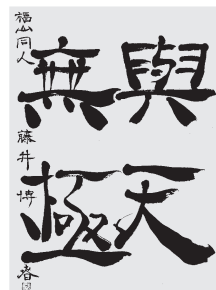 與天
無極
福山同人 藤井博 春園